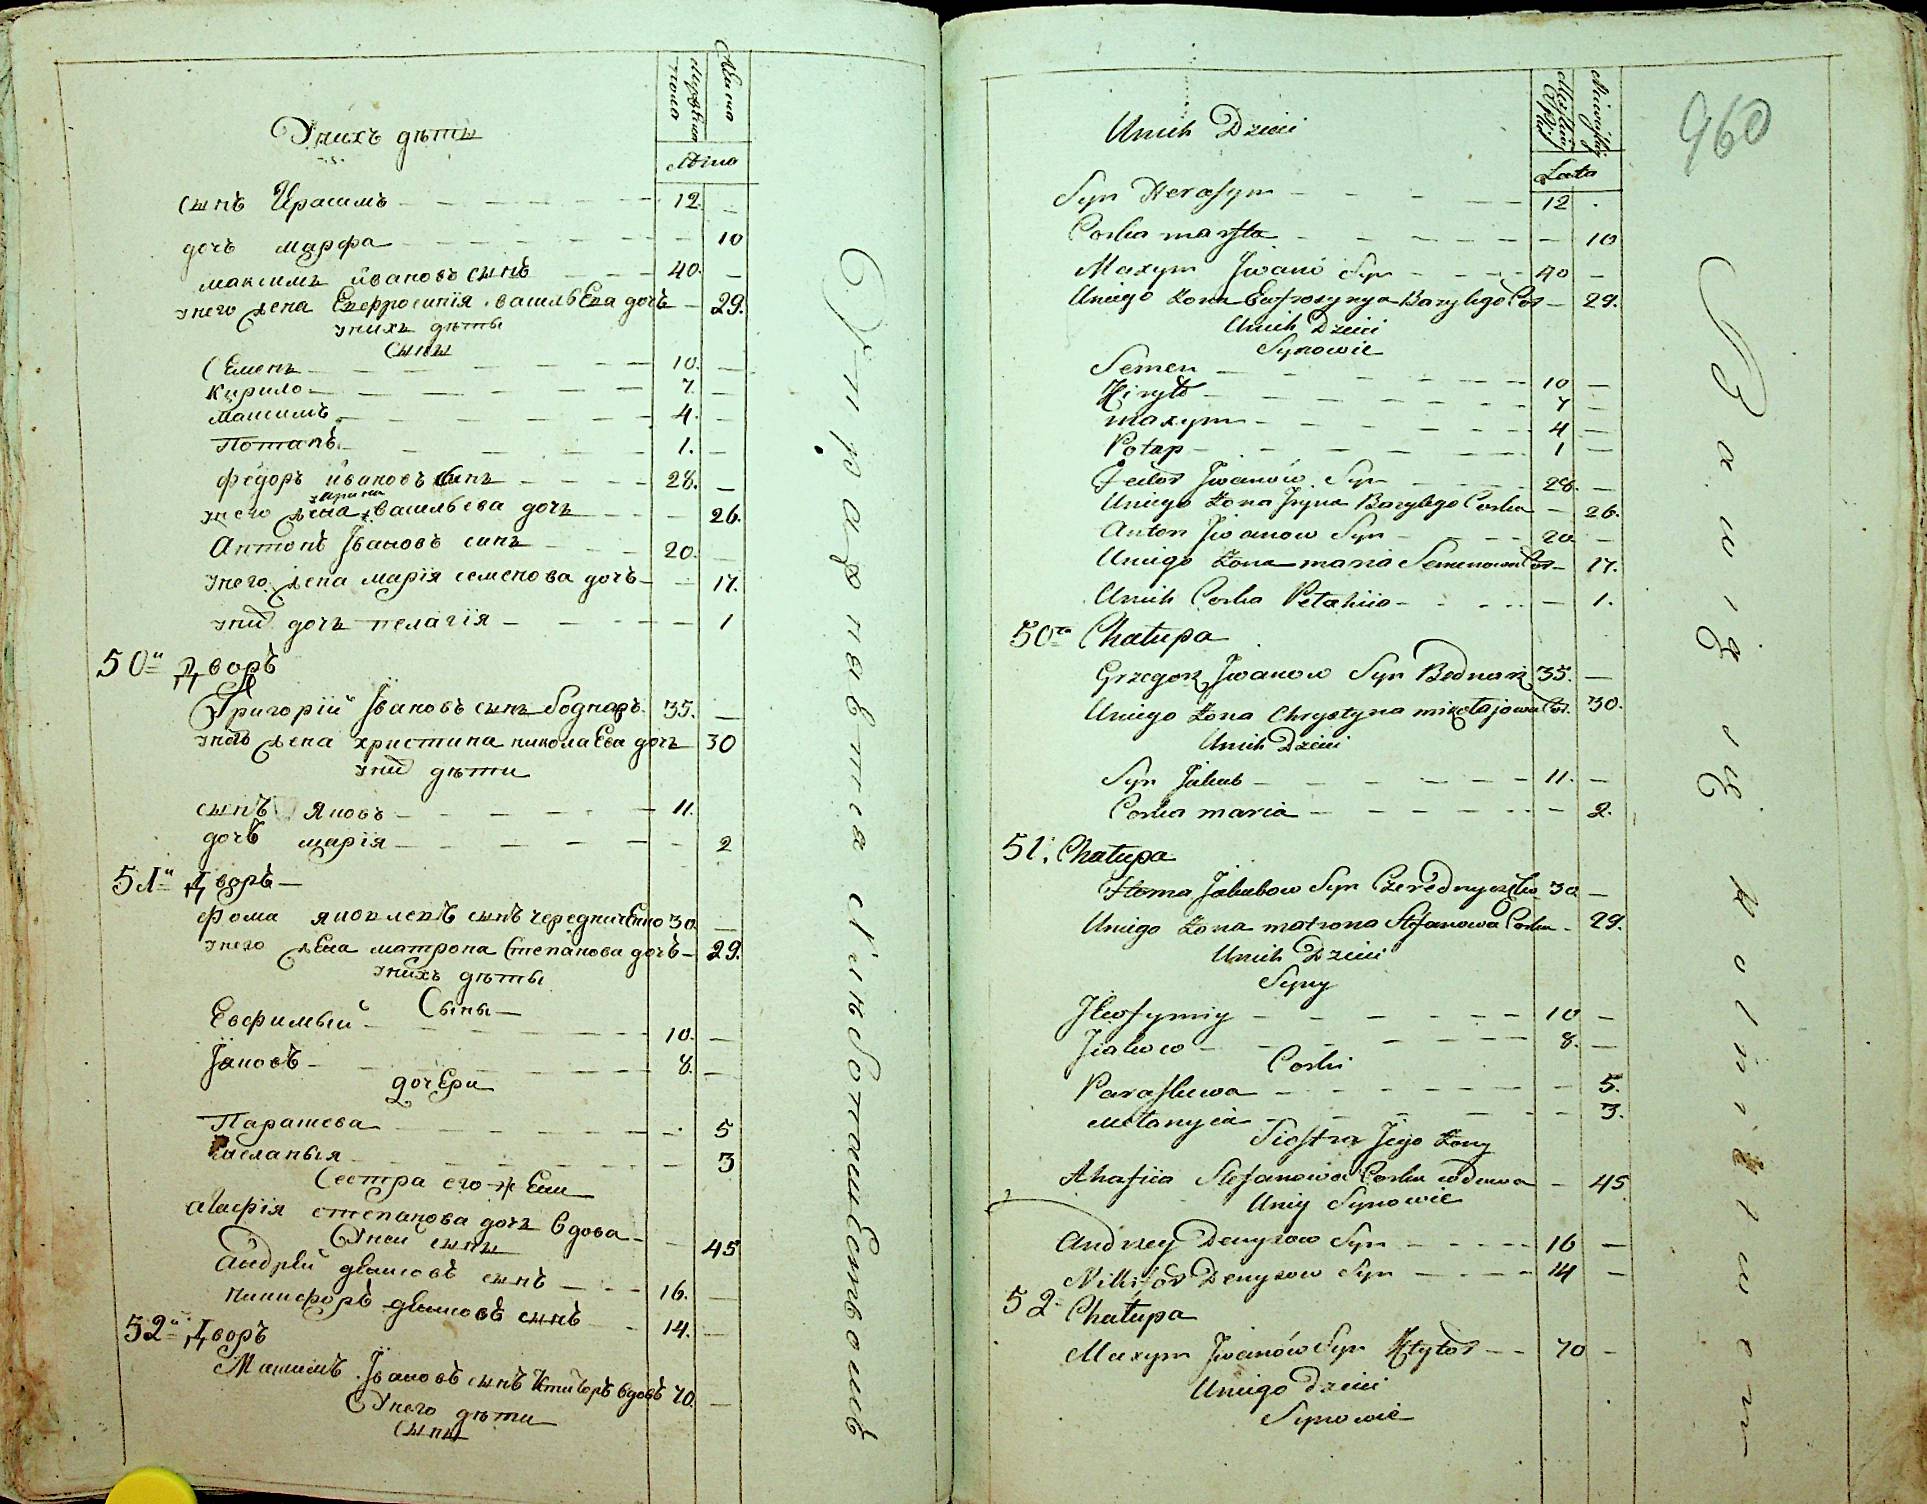 Унихъ дѣти
Лѣта
сынъ Ѣрасимъ 12
дочъ марфа 10
максимъ ивановъ сынъ 40
унего жена Евфросинія василѣва дочъ 29
унихъ дѣты
Сыны
Семенъ 10
Кирило 7
Максимъ 4
Потапъ 1
федоръ ивановъ сынъ 28
унего жена ирина васильева дочъ 26
Антонъ Ивановъ синъ 20
унего жена марія семенова дочъ 17
дочъ пелагія 1
50й Дворъ
Григорій Ивановъ сынъ боднаръ 35
жена христина николаева дочъ 30
дѣти
сынъ Яковъ 11
дочъ марія 2
51й Дворъ
фома яковлевъ сынъ чередниченко 30
унего жена матрона Степанова дочъ 29
унихъ дѣты
Сыны
Евфимый 10
Іаковъ 8
дочери
Параскева 5
меланыя 3
Сестра его жени
агафія степанова дочъ вдова 45
Унеи сыны
Андрей денисовъ сынъ 16
никифоръ денисовъ сынъ 14
52й Дворъ
Максимъ Ивановъ сынъ Ктиторъ вдовъ 70
Унего дѣти
сыны
Unich Dzieci
Lata
Syn Herasym 12
Corka marfta 10
Maxym Iwanó Syn 40
Uniego Żona Eufrosynya Bazylego Cor 29.
Unich Dzieci
Synowie
Semen 10
Kiryło 7
maxym 4
Potap 1
Fedor Iwanów Syn 28.
Uniego Żona Iryna Bazylego Corka 26.
Anton Iwanow Syn 20
Uniego Żona maria Semenowa Cor 17.
Unich Corka Pelahiia 1.
50ta Chałupa
Grzegorz Iwanow Syn Bednarz 35.
Uniego Żona Chrystyna mikołajowa Cor. 30.
Unich Dzieci
Syn Jakub 11.
Corka maria 2.
51. Chałupa
Homa Jakubow Syn Czerednyczeńko 30
Uniego Żona matrona Stefanowa Corka 29.
Unich Dzieci
Syny
Iewfymiy 10
Jiakow 8.
Corki
Paraskewa 5.
Mełanyia 3.
Siostra Jego Żony
Ahafiia Stefanowa Corka wdowa 45
Uniy Synowie
Andrzey Denysow Syn 16
Nikifor Denysow Syn 14
52 Chałupa
Maxym Iwanów Syn Ktytor 70
Uniego Dzieci
Synowie
960